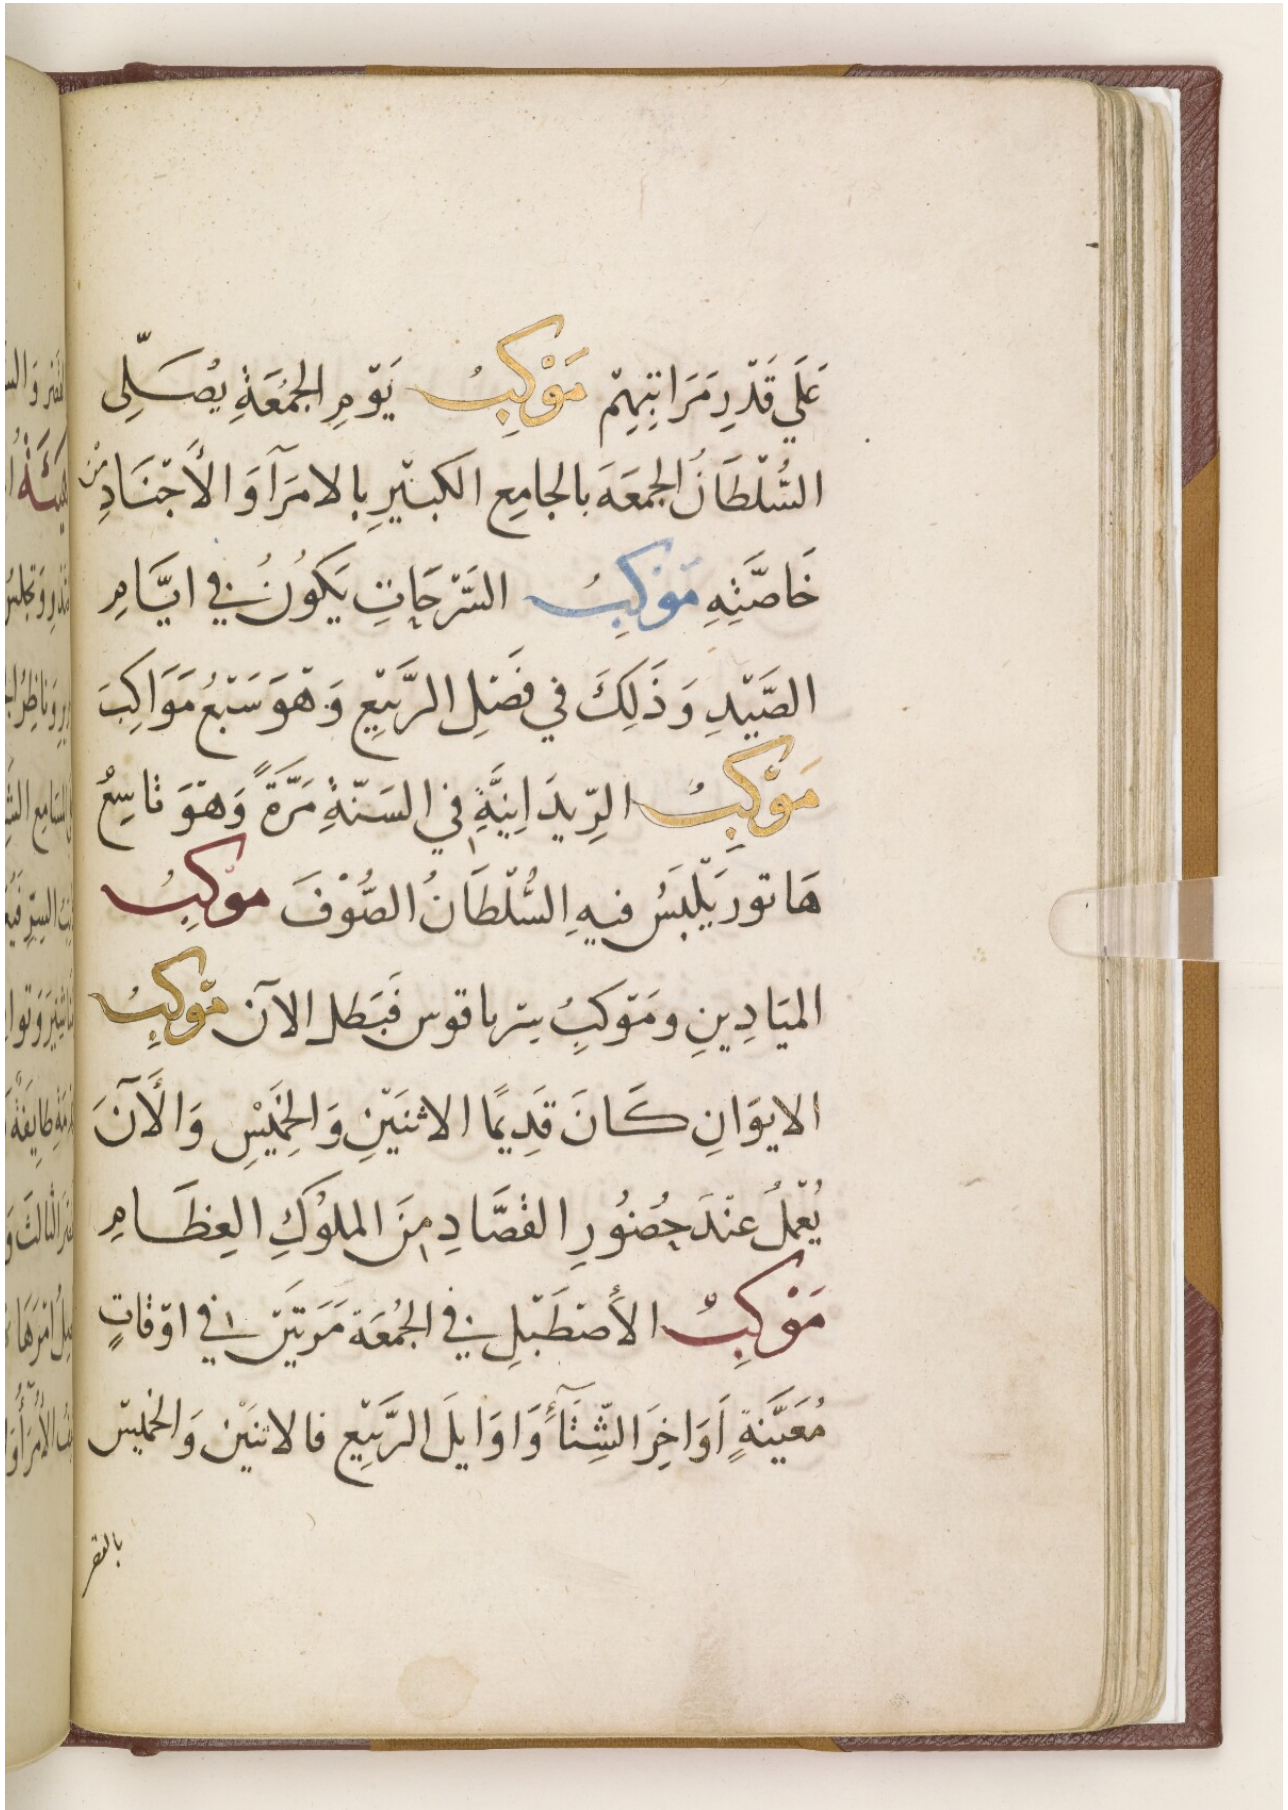 عَلَي قَدْرِ مَرَاتِبِهِمْ مَوْكِبُ يَوْمِ الجُمُعَةِ يُصَلِّى
السُّلْطَانُ الجمعَةَ بالجامِعِ الكبيْرِ بِالامرَآ وَالأَجْنَادِ مْنْ
خَاصَّتِهِ مَوْكِبُ السَّرْحَاتِ يَكُونُ في ايَّامِ
الصَّيْدِ وَذَلِكَ في فَصْلِ الرَّبيْعِ وَهْوَ سَبْعُ مَوَاكِبَ
مَوْكِبُ الرِّيدَانِيَّةِ في السَنّةِ مَرَّةً وَهْوَ تاسِعُ
هَاتورَ يَلْبَسُ فيهِ السُّلْطَانُ الصُّوْفَ موْكِبُ
الميَادِينِ ومَوْكبُ سرياقوس فَبَطل الآن مَوْكِبُ
الايوَانِ كَانَ قَدِيمًا الاثنَيْنِ وَالخَمِيْسِ وَالأَنَ
يُعْمَلُ عنْدَ حُضُورِ القصَّادِ مِنَ الملوْكِ العِظَامِ
مَوْكِبُ الأَصْطَبْلِ في الجُمُعَة مَرَتَيْن في اوْقاتٍ
مُعَيَّنَةٍ اَوَاخِرَ الشِّتَآءِ وَاوَايلَ الرَّبيْعِ فالاثنَيْن وَالخميْس
بالقصر